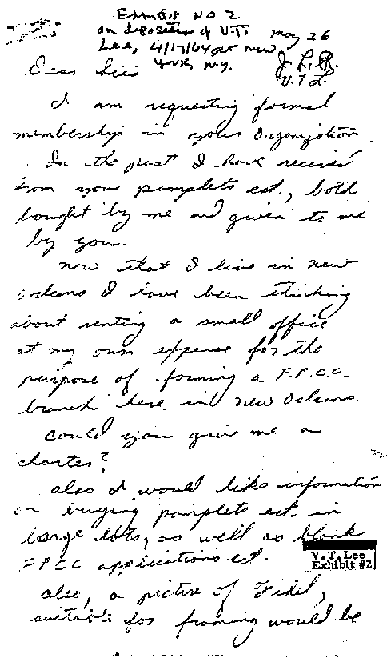 Exhibit NO 2
on deposition of V.T.
Lee, 4/17/64 at New
York, N.Y.
May 26
J.L.R.
V.T.L.
Dear Sirs
I am requesting formal
membership in your Organization.
In the past I have received
from you pamplets ect., both
bought by me and given to me
by you.
Now that I live in New
Orleans I have been thinking
about renting a small office
at my own expense for the
purpose of forming a F.P.C.C.
branch here in New Orleans.
Could you give me a
charter?
Also I would like information
on buying pamplets ect. in
large lots, as well as blank
F.P.C.C. applications ect.
Also, a picture of Fidel,
suitable for framing would be
V. T. Lee
Exhibit #2